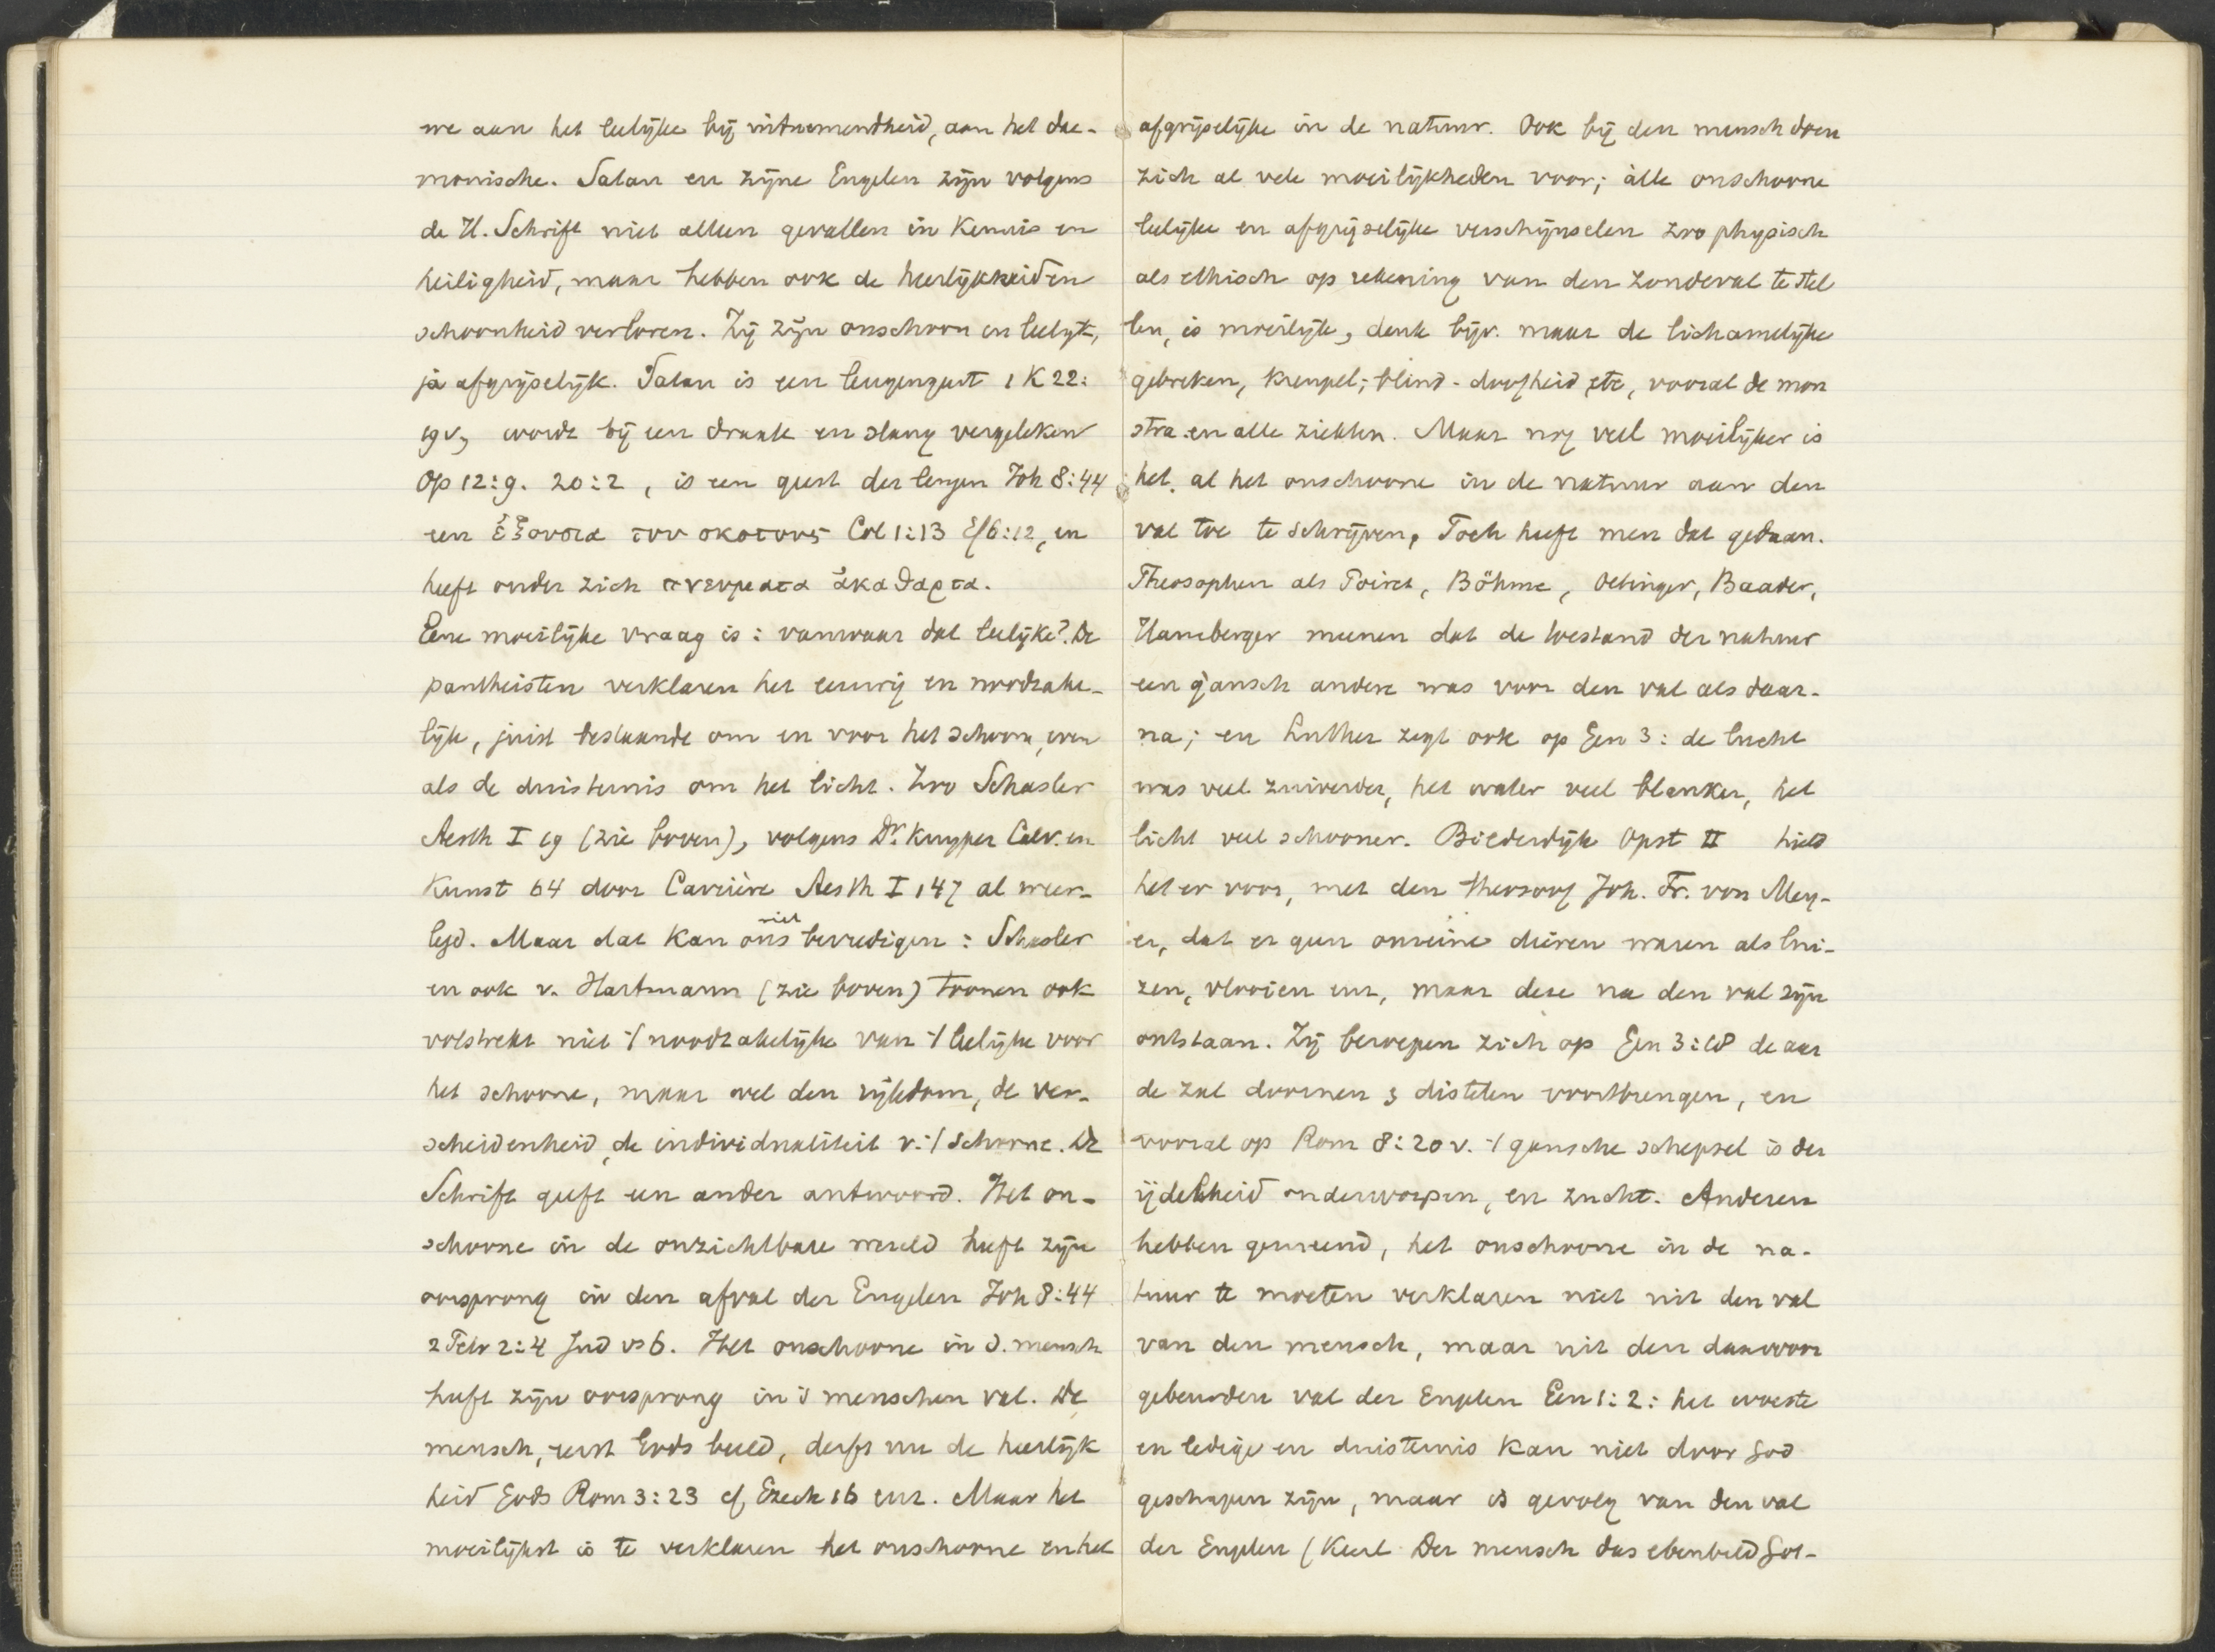 we aan het leelijke bij uitnemendheid, aan het dae-
monische. Satan en zijne Engelen zijn volgens
de H. Schrift niet alleen gevallen in kennis en
heiligheid, maar hebben ook de heerlijkheid en
schoonheid verloren. Zij zijn onschoon en leelijk,
ja afgrijselijk. Satan is een leugengeest 1 K 22:
19v, wordt bij een draak en slang vergeleken
Op 12:9. 20:2, is een geest der leugen Joh 8:44
een ἐξουσια του σκοτους Col 1:13 Ef 6:12, en
heeft onder zich πνευματα ἀκαθαρτα.
Eene moeilijke vraag is: vanwaar dat leelijke? De
pantheisten verklaren het eeuwig en noodzake-
lijk, juist bestaande om en voor het schoone, even
als de duisternis om het licht. Zoo Schasler
Aesth I 19 (zie boven), volgens Dr. Kuyper Calv. en
Kunst 64 door Carrière Aesth I 147 al weer-
legd. Maar dat kan ons niet bevredigen: Schasler
en ook v. Hartmann (zie boven) toonen ook
volstrekt niet ⁒ noodzakelijke van ⁒ leelijke voor
het schoone, maar wel den rijkdom, de ver-
scheidenheid, de individualiteit v. ⁒ schoone. De
Schrift geeft een ander antwoord. Het on-
schoone in de onzichtbare wereld heeft zijn
oorsprong in den afval der Engelen Joh 8:44
2 Petr 2:4 Jud vs 6. Het onschoone in d. mensch
heeft zijn oorsprong in 's menschen val. De
mensch, eerst Gods beeld, derft nu de heerlijk
heid Gods Rom 3:23 cf, Ezech 16 enz. Maar het
moeilijkst is te verklaren het onschoone en het
afgrijselijke in de natuur. Ook bij den mensch doen
zich al vele moeilijkheden voor; alle onschoone
leelijke en afgrijselijke verschijnselen zoo physisch
als ethisch op rekening van den zondeval te stel
len, is moeilijk, denk bijv. maar de lichamelijke
gebreken, kreupel-, blind-doofheid etc, vooral de mon
stra en alle ziekten. Maar nog veel moeilijker is
het, al het onschoone in de natuur aan den
val toe te schrijven. Toch heeft men dat gedaan.
Theosophen als Poiret, Böhme, Oetinger, Baader,
Hamberger meenen dat de toestand der natuur
een gansch andere was voor den val als daar-
na; en Luther zegt ook op Gen 3: de lucht
was veel zuiverder, het water veel blanker, het
licht veel schooner. Bilderdijk Opst II hield
het er voor, met den theosoof Joh. Fr. von Mey-
er, dat er geen onreine dieren waren als lui-
zen, vlooien enz, maar deze na den val zijn
ontstaan. Zij beroepen zich op Gen 3:18 de aar
de zal doornen & distelen voortbrengen, en
vooral op Rom 8:20 v. ⁒ gansche schepsel is der
ijdelheid onderworpen, en zucht. Anderen
hebben gemeend, het onschoone in de na-
tuur te moeten verklaren niet uit den val
van den mensch, maar uit den daarvoor
gebeurden val der Engelen Gen 1:2: het woeste
en ledige en duisternis kan niet door God
geschapen zijn, maar is gevolg van den val
der Engelen (Keerl Der mensch das ebenbild Got-